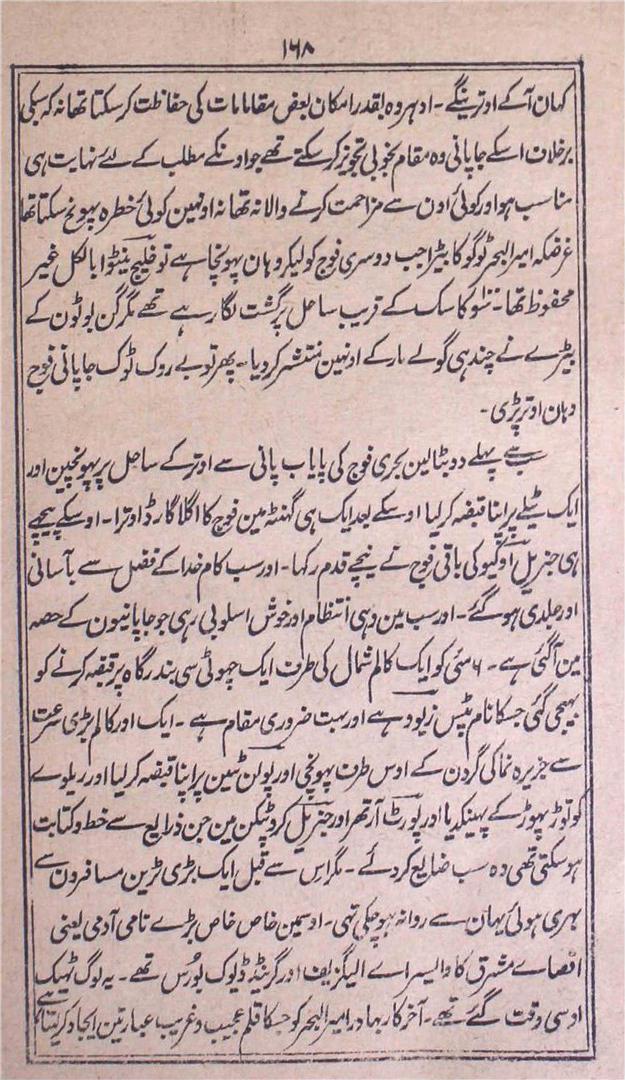 ۱۶۸
کہان آکے اوترینگے ۔ ادہر وہ بقدر امکان بعض مقامات کی حفاظت کر سکتا تھا نہ کہ سبکی
برخلاف اسکے جاپانی وہ مقام بخوبی تجویز کر سکتے تھے جو اونکے مطلب کے لئے نہایت ہی
مناسب ہو اور کوئی اون سے مزاحمت کرنے والا نہ تھا نہ اونہین کوئی خطرہ پہونچ سکتا تھا
غرضکہ امیر البحر ٹوگو کا بیڑا جب دوسری فوج کو لیکر وہان پہونچا ہے تو خلیج ینٹوا بالکل غیر
محفوظ تھا ۔ کاسک کے قریب ساحل پر گشت لگا رہے تھے مگر گن بوٹون کے
بیڑے نے چند ہی گولے مار کے اونہین منتشر کر دیا ۔ پھر تو بے روک ٹوک جاپانی فوج
وہان اوتر پڑی ۔
سب سے پہلے دو بٹالین بحری فوج کی پایاب پانی سے اوتر کے ساحل پر پہونچین اور
ایک ٹیلے پر اپنا قبضہ کر لیا اوسکے بعد ایک ہی گھنٹہ مین فوج کا اگلا گارڈ اوترا ۔ اوسکے پیچھے
ہی جنریل اوگیو کی باقی فوج نے نیچے قدم رکہا ۔ اور سب کام خدا کے فضل سے بآسانی
اور جلدی ہو گئے ۔ اور سب مین وہی انتظام اور خوش اسلوبی رہی جو جاپانیون کے حصہ
مین آگئی ہے ۔ ۶ مئی کو ایک کالم شمال کی طرف ایک چہوٹی سی بندرگاہ پر قبضہ کرنے کو
بہیجی گئی جسکا نام پٹس زیوو ہے اور بہت ضروری مقام ہے ۔ ایک اور کالم بڑی سرعت
سے جزیرہ نما کی گردن کے اوس طرف پہونچی اور پولن ٹین پر اپنا قبضہ کر لیا اور ریلوے
کو توڑ پہوڑ کے پہینکدیا اور پورٹ آرتھر اور جنریل کروپٹکن مین جن ذرایع سے خط و کتابت
ہو سکتی تھی وہ سب ضایع کر دئے ۔ مگر اس سے قبل ایک بڑی ٹرین مسافرون سے
بہری ہوئی یہان سے روانہ ہو چکی تہی ۔ اوسمین خاص خاص بڑے نامی آدمی یعنی
اقصاے مشرق کا والیسراے الیگزیف اور گرینڈ ڈیوک بورس تھے ۔ یہ لوگ ٹھیک
اوسی وقت گئے تھے ۔ آخرکار بہادر امیر البحر کو جسکا قلم عجیب و غریب عبارتین ایجاد کر لیتا ہے